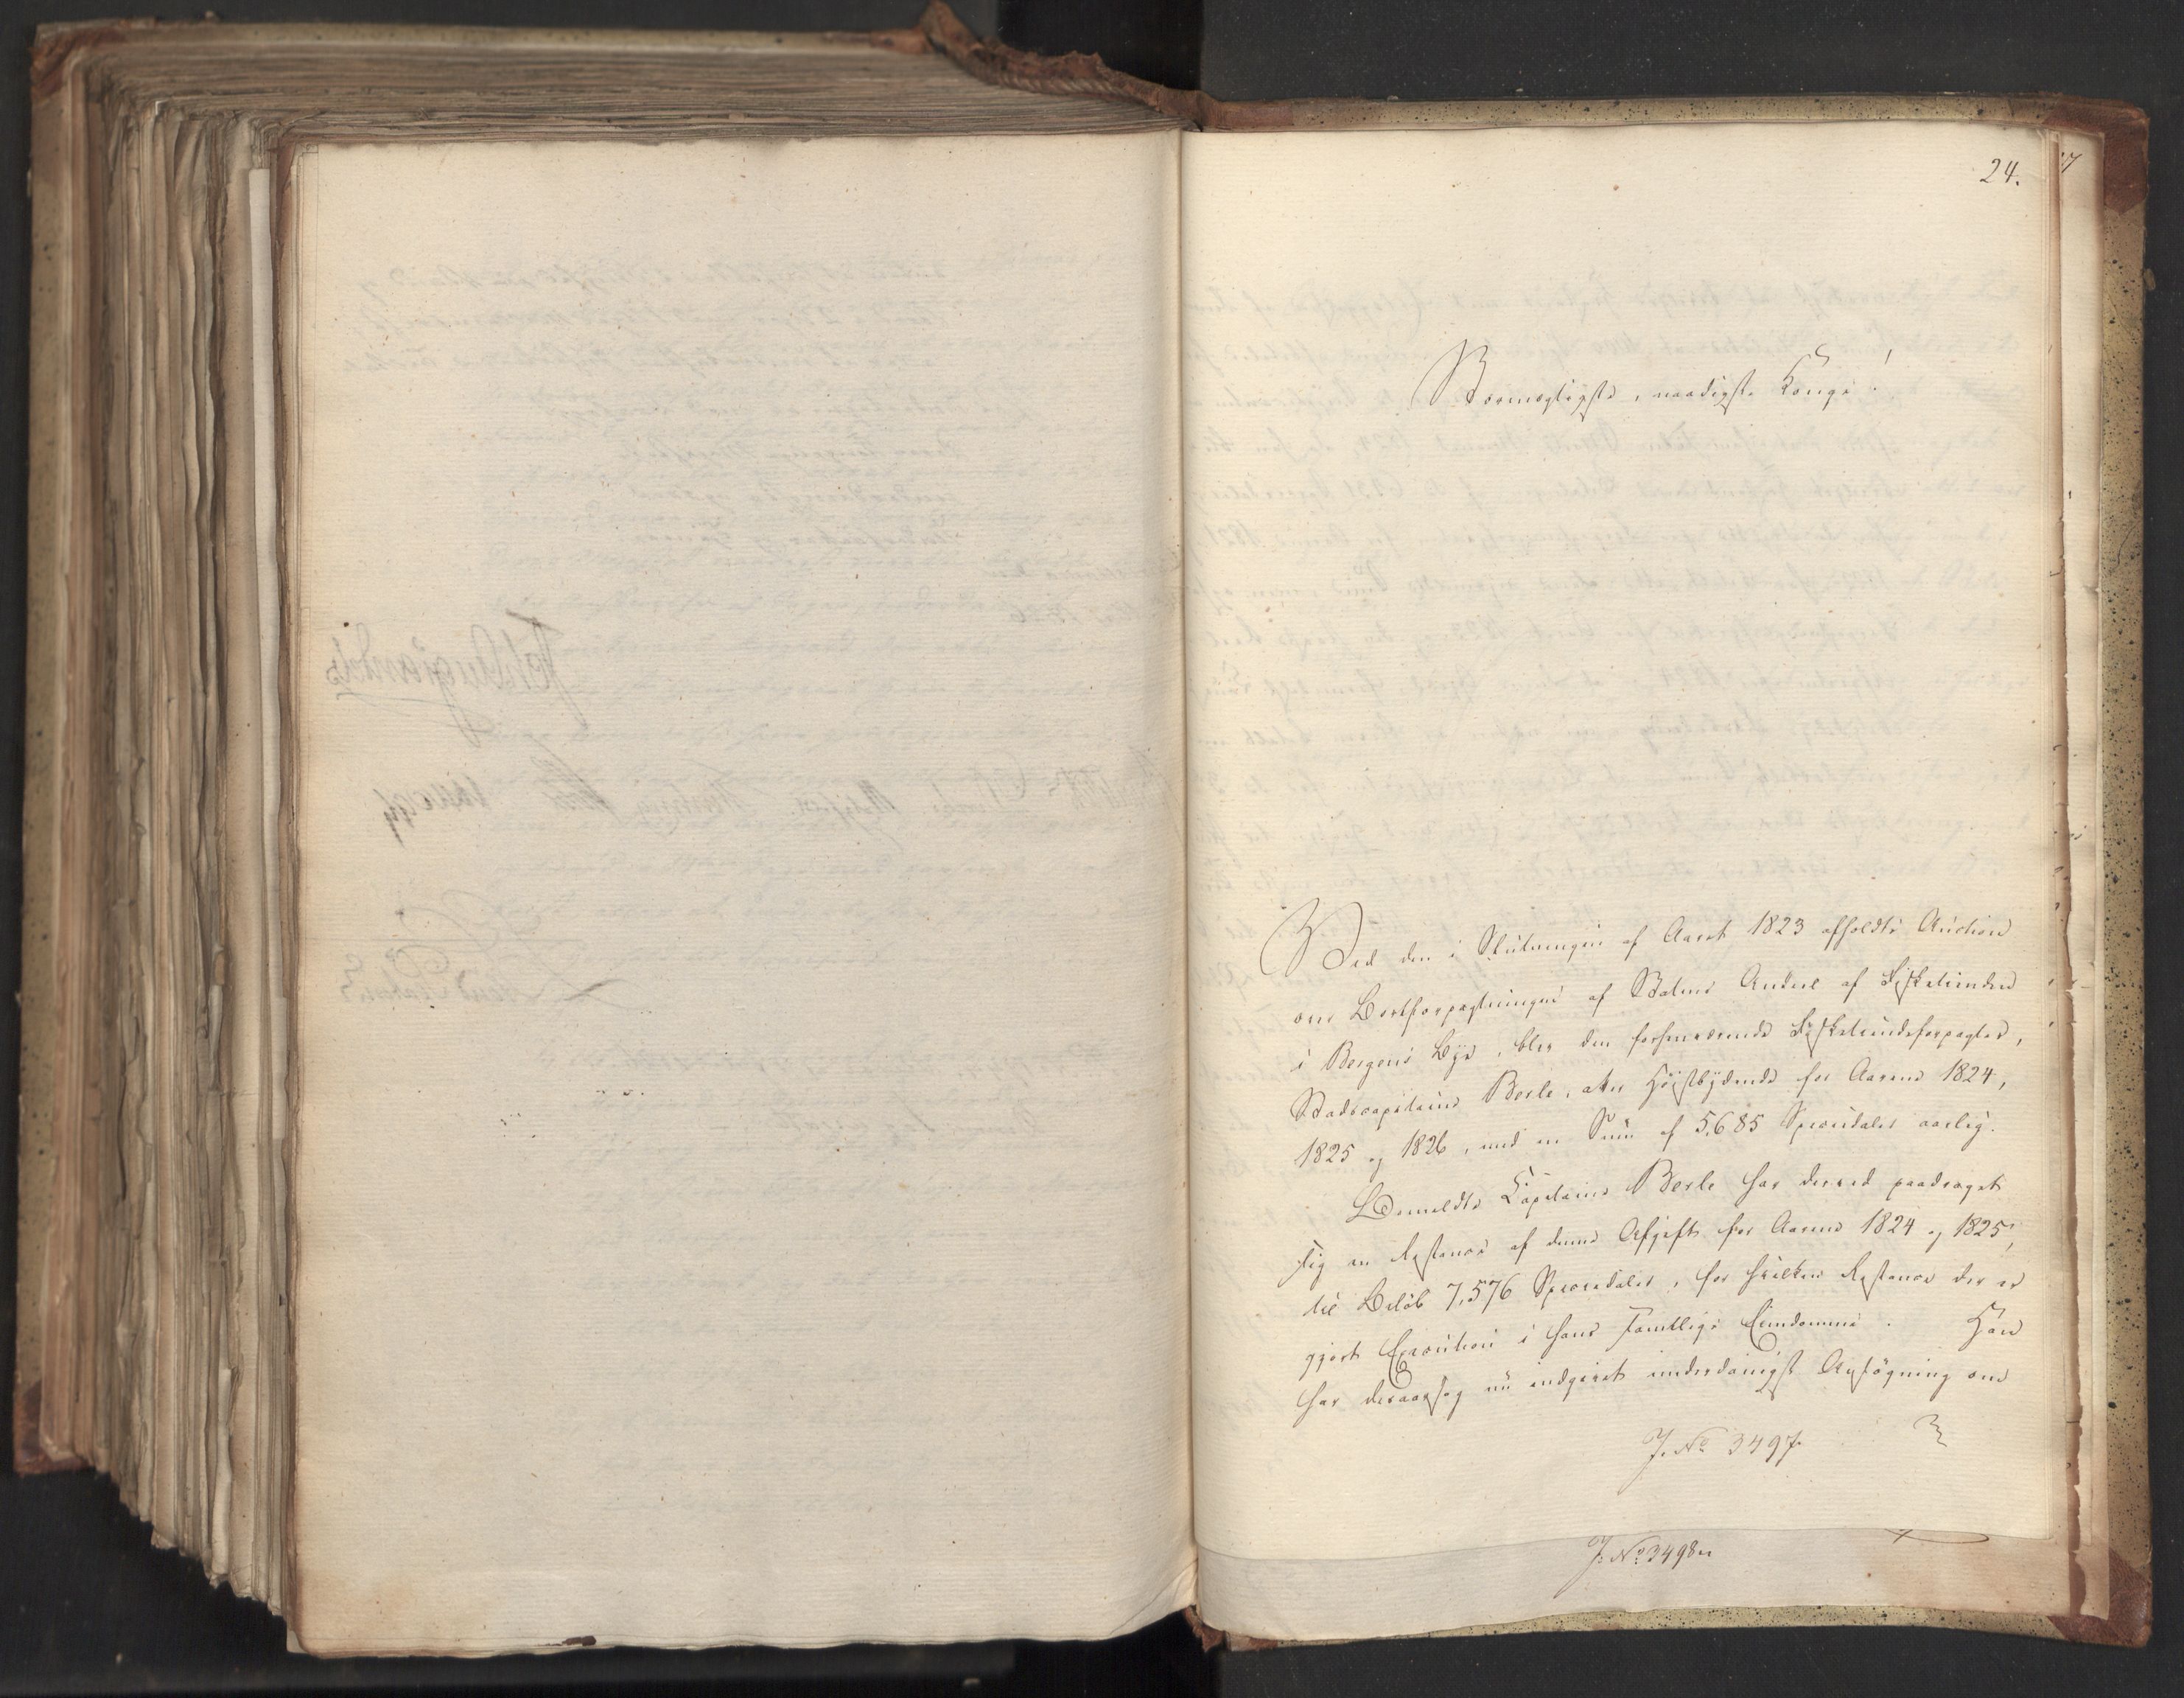 24.
Stormægtigste, naadigste Konge!
Ved den i Slutningen af Aaret 1823 afholdte Auction
om Bortforpagtningen af Statens Andeel af Fisketienden
i Bergens Bye, blev den forhenværende Fisketiendeforpagter,
Stadscapitaine Berle, atter Høistbydende for Aarene 1824,
1825 og 1826, med en Sum af 5,685 Speciedaler aarlig.
Bemeldte Capitaine Berle har derved paadraget
sig en Restance af denne Afgift for Aarene 1824 og 1825,
til Beløb 7,576 Speciedaler, for hvilken Restance der er
gjort Execution i hans samtlige Eiendomme. Han
har desaarsag nu indgivet underdanigst Ansøgning om
J. No 3497.
J. No 3498